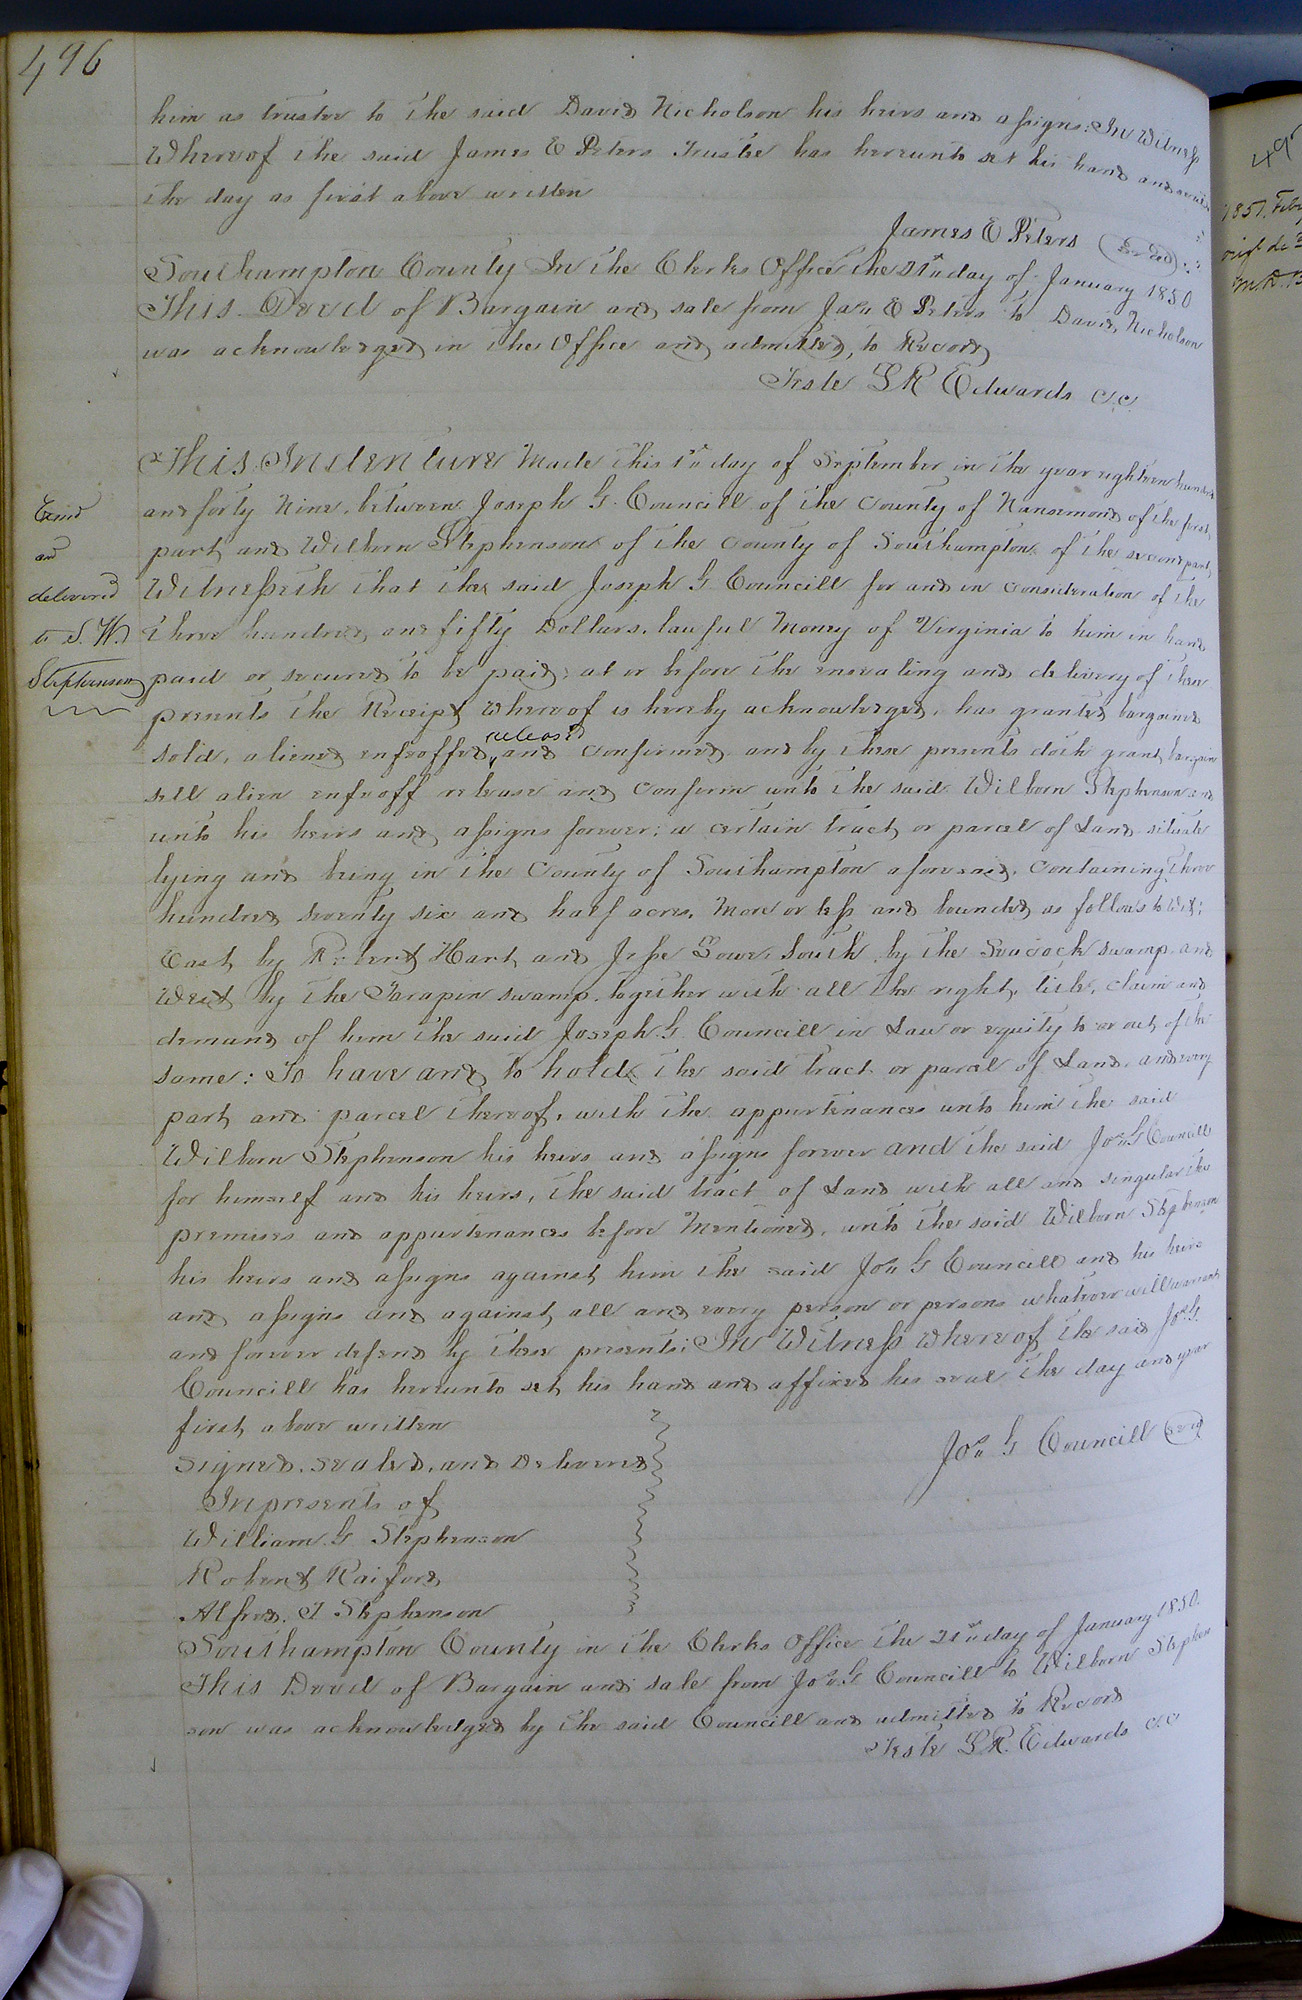 496
him as trustee to the said David Nicholson his heirs and assigns: In Witness
Whereof the said James E Peters Trustee has hereunto set his hand and seal
the day as first above written
James E Peters (Seal)
Southampton County In the Clerks Office the 21st day of January 1850
This Deed of Bargain and sale from Jas E Peters to David Nicholson
was acknowledged in the Office and admitted to Record
Teste L R Edwards C.C.
This Indenture Made this 1st day of September in the year eighteen hundred
and forty Nine, between Joseph G. Councill of the County of Nansemond of the first
part and Wilborn Stephenson of the County of Southampton of the second part
Witnesseth that the said Joseph G Councill for and in consideration of the
three hundred and fifty Dollars, lawful Money of Virginia to him in hand
paid or secured to be paid; at or before the ensealing and delivery of these
presents the Receipt Whereof is hereby acknowledged, has granted bargained
sold, aliened enfeoffed, released and confirmed and by these presents doth grant bargain
sell alien enfeoff release and confirm unto the said Wilborn Stephenson and
unto his heirs and assigns forever; a certain tract or parcel of Land situate
lying and being in the County of Southampton aforesaid, containing three
hundred seventy six and half acres, More or less and bounded as follows to Wit;
East by Robert Hart and Jesse Gower South by the Seacock swamp and
West by the Tarapin swamp, together with all the right, title, claim and
demand of him the said Joseph. G Councill in Law or equity to or out of the
same: To have and to hold the said tract or parcel of Land, and every
part and parcel thereof, with the appurtenances unto him the said
Wilborn Stephenson his heirs and assigns forever and the said Jos G Councill
for himself and his heirs, the said tract of Land with all and singular the
premises and appurtenances before Mentioned, unto the said Wilborn Stephenson
his heirs and assigns against him the said Jos G Councill and his heirs
and assigns and against all and every person or persons whatever will warrant
and forever defend by these presents: In Witness Whereof the said Jos. G.
Councill has hereunto set his hand and affixed his seal the day and year
first above written
Jos G Councill (seal)
Signed, sealed, and Delivered
In presents of
William. G Stephenson
Robert Raiford
Alfred. J Stephenson
Southampton County in the Clerks Office the 21st day of January 1850.
This Deed of Bargain and sale from Jos G Councill to Wilborn Stephen
son was acknowledged by the said Councill and admitted to Record
Teste L R. Edwards C.C
Exind
and
delivered
to S. W.
Stephenson
1851. Feby